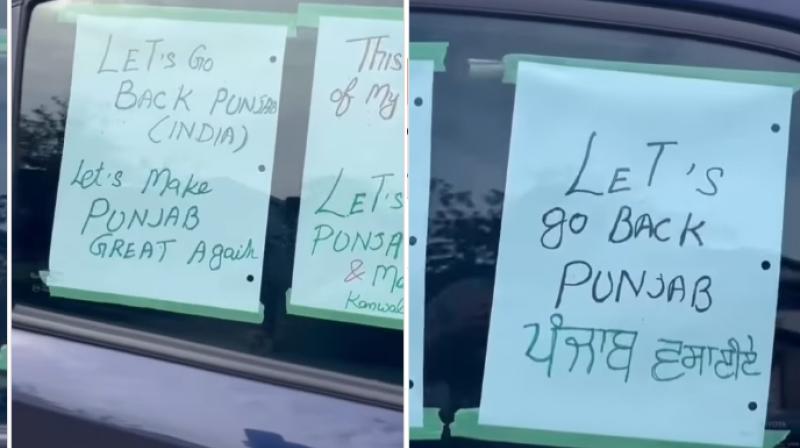 LET'S GO
BACK PUNJAB
(INDIA)
Let's Make
PUNJAB
GREAT Again
This
of My
LET'S
PUNJA
& Ma
Kanwal
LET'S
go BACK
PUNJAB
ਪੰਜਾਬ ਵਸਾਈਏ